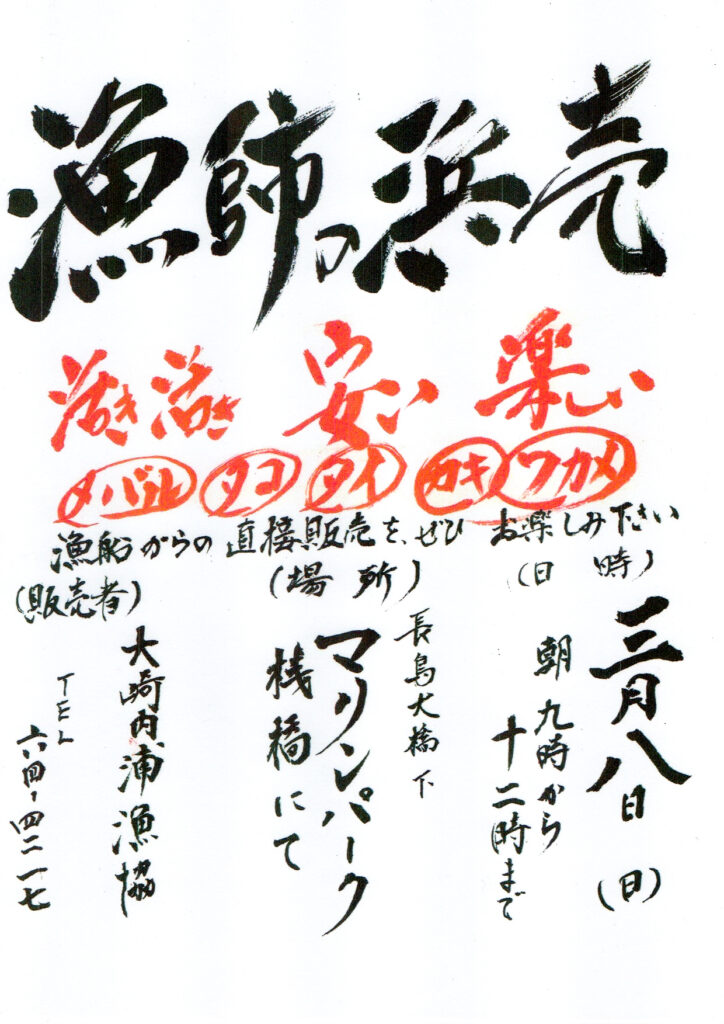 漁師の浜売
活き活き 安い 楽しい
メバル タコ タイ カキ ワカメ
漁船からの直接販売を、ぜひ お楽しみ下さい
(日 時)
三月八日(日)
朝九時から
十二時まで
(場 所)
長島大橋下
マリンパーク
桟橋にて
(販売者)
大崎内浦漁協
TEL
六四-四二一七